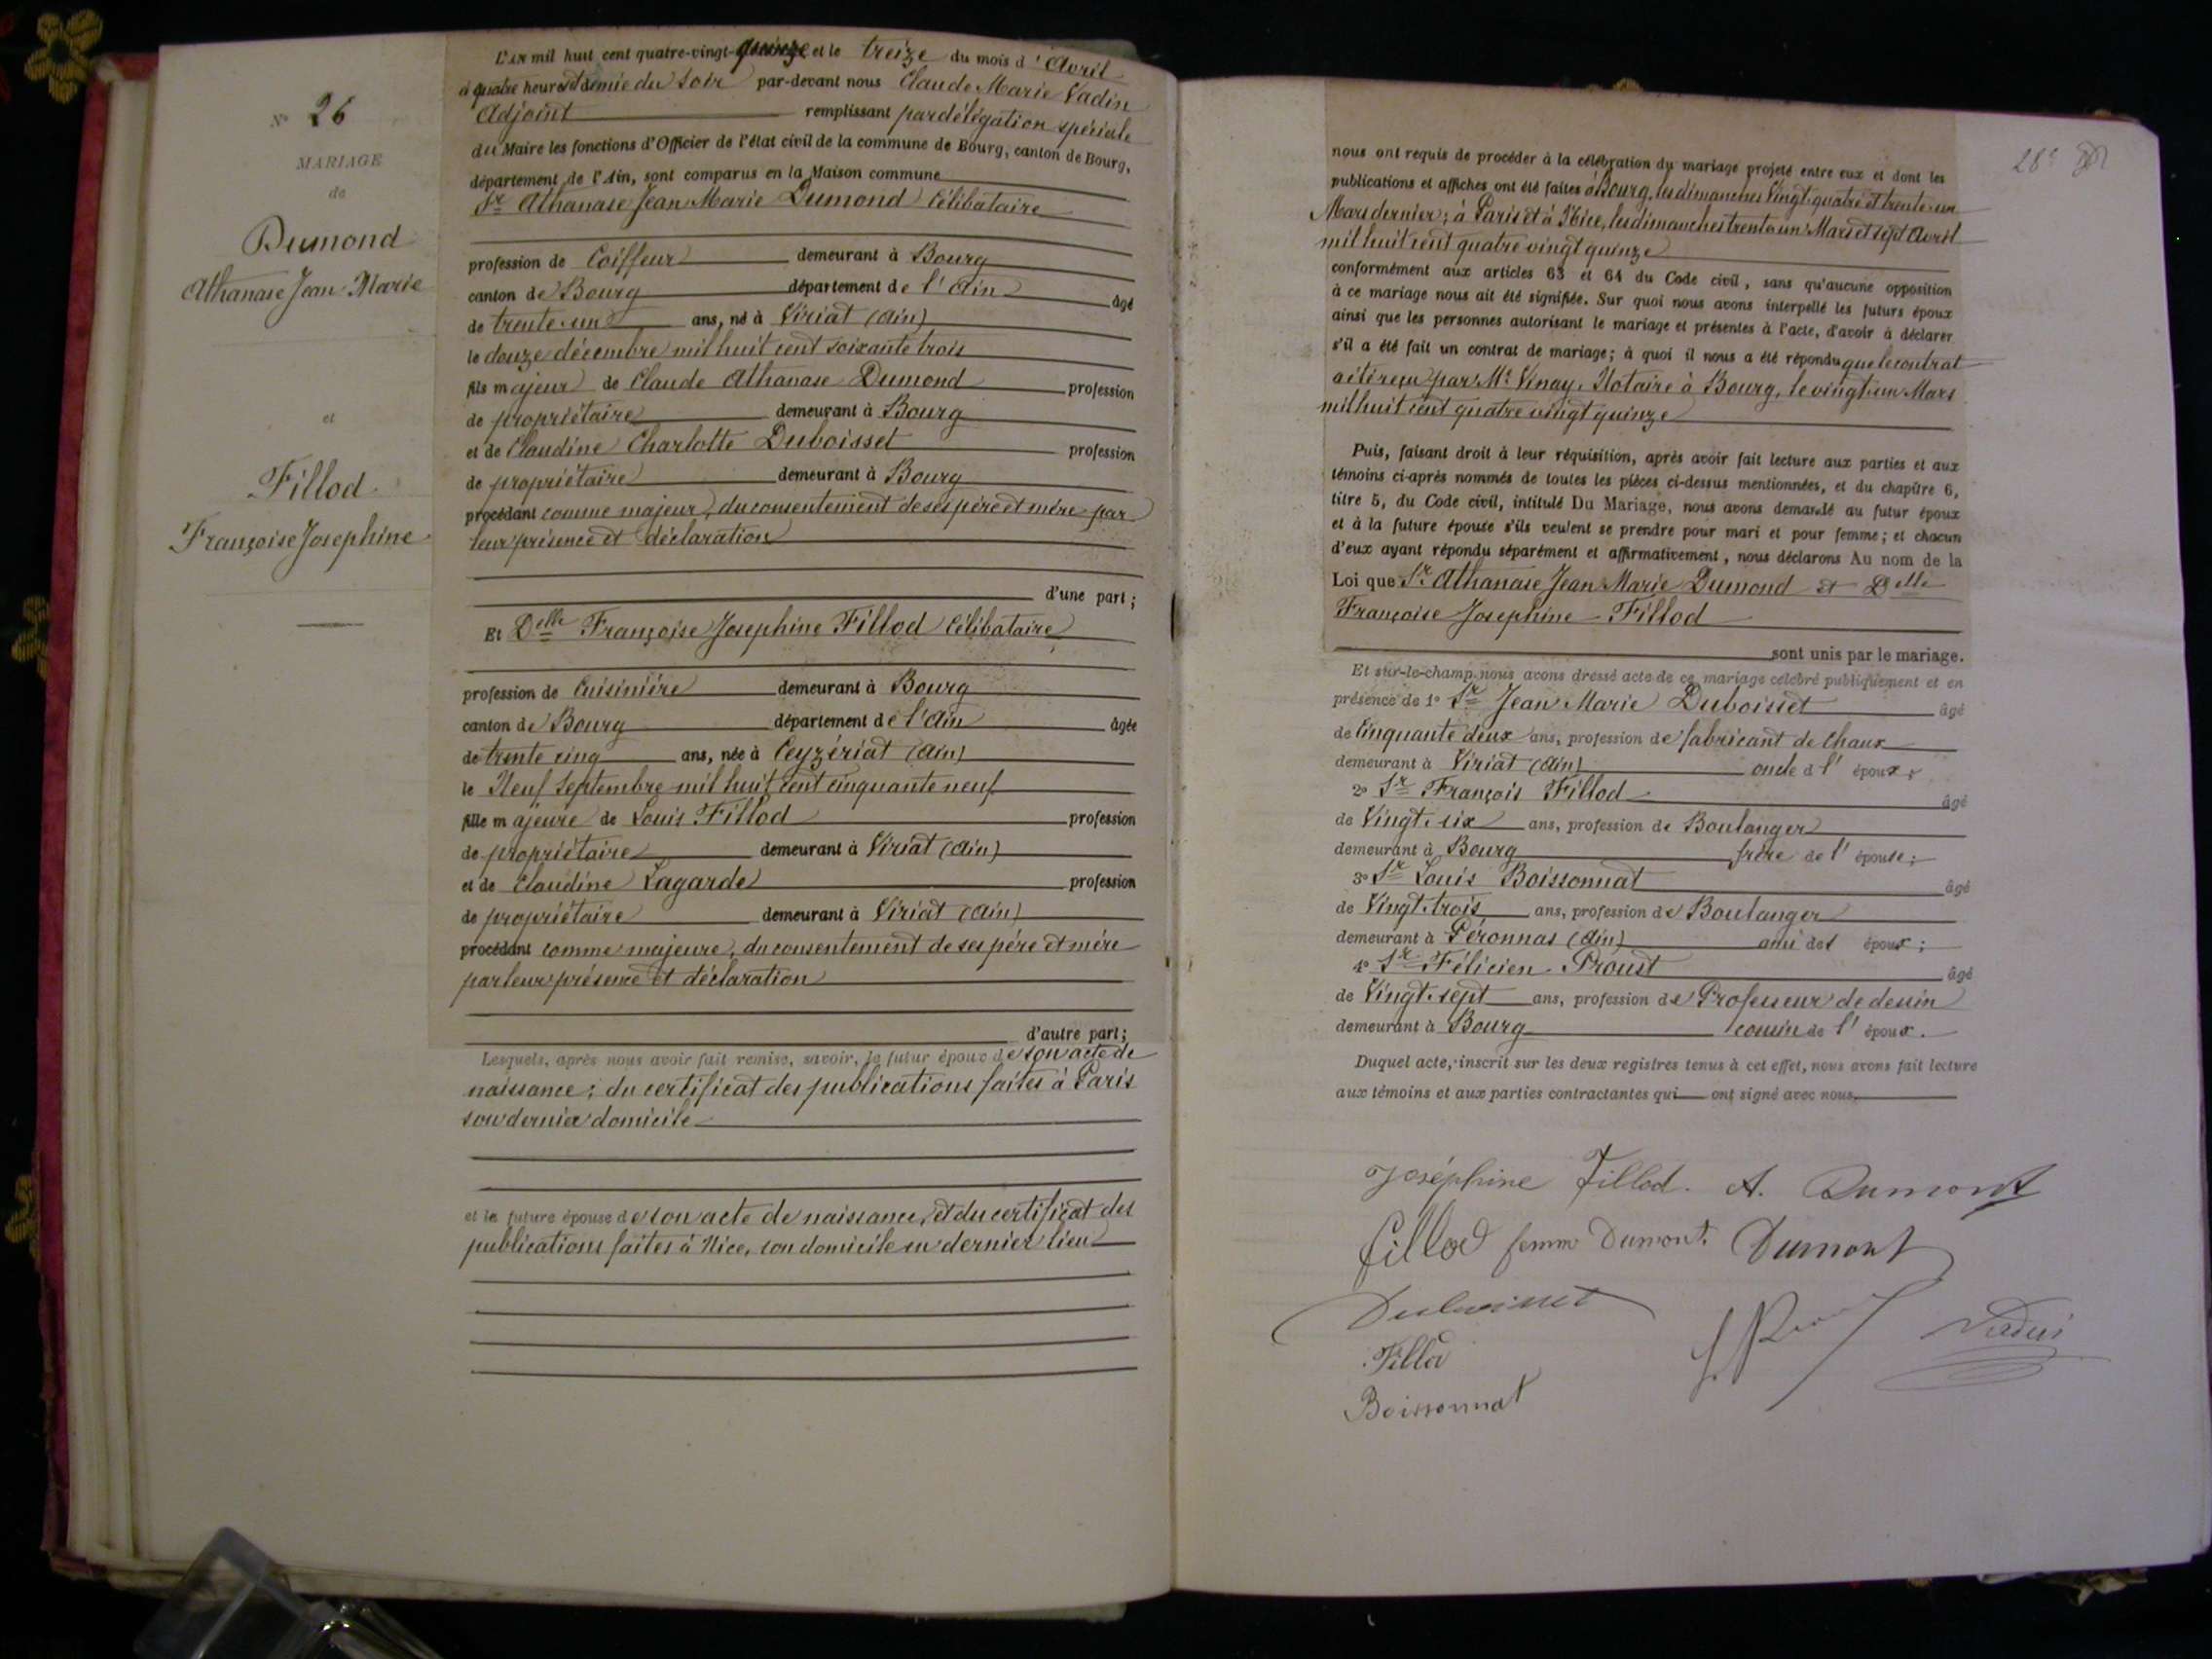 N° 26
MARIAGE
de
Dumond
Athanase Jean Marie
et
Fillod
Françoise Josephine
L'AN mil huit cent quatre-vingt-quinze et le treize du mois d'Avril
à quatre heures et demie du soir par-devant nous Claude Marie Vadin
Adjoint remplissant par délégation spéciale
du Maire les fonctions d'Officier de l'état civil de la commune de Bourg, canton de Bourg,
département de l'Ain, sont comparus en la Maison commune
Sr Athanase Jean Marie Dumond Célibataire
profession de Coiffeur demeurant à Bourg
canton de Bourg département de l'Ain âgé
de trente-un ans, né à Viriat (Ain)
le douze décembre mil huit cent soixante trois
fils majeur de Claude Athanase Dumond profession
de propriétaire demeurant à Bourg
et de Claudine Charlotte Duboisset profession
de propriétaire demeurant à Bourg
procédant comme majeur, du consentement de ses père et mère par
leur présence et déclaration
d'une part;
Et Delle Françoise Josephine Fillod Célibataire
profession de Cuisinière demeurant à Bourg
canton de Bourg département de l'Ain âgée
de trente cinq ans, née à Ceyzériat (Ain)
le Neuf Septembre mil huit cent cinquante neuf
fille majeure de Louis Fillod profession
de propriétaire demeurant à Viriat (Ain)
et de Claudine Lagarde profession
de propriétaire demeurant à Viriat (Ain)
procédant comme majeure, du consentement de ses père et mère
par leur présence et déclaration
d'autre part;
Lesquels, après nous avoir fait remise, savoir, le futur époux de son acte de
naissance; du certificat des publications faites à Paris
son dernier domicile
et la future épouse de son acte de naissance, et du certificat des
publications faites à Nice, son domicile en dernier lieu
28e
nous ont requis de procéder à la célébration du mariage projeté entre eux et dont les
publications et affiches ont été faites à Bourg, les dimanches Vingt-quatre et trente-un
Mars dernier; à Paris et à Nice, les dimanches trente un Mars et sept Avril
mil huit cent quatre vingt quinze
conformément aux articles 63 et 64 du Code civil, sans qu'aucune opposition
à ce mariage nous ait été signifiée. Sur quoi nous avons interpellé les futurs époux
ainsi que les personnes autorisant le mariage et présentes à l'acte, d'avoir à déclarer
s'il a été fait un contrat de mariage; à quoi il nous a été répondu que le contrat
a été reçu par Me Vinay, Notaire à Bourg, le vingt-un Mars
mil huit cent quatre vingt quinze
Puis, faisant droit à leur réquisition, après avoir fait lecture aux parties et aux
témoins ci-après nommés de toutes les pièces ci-dessus mentionnées, et du chapitre 6,
titre 5, du Code civil, intitulé Du Mariage, nous avons demandé au futur époux
et à la future épouse s'ils veulent se prendre pour mari et pour femme; et chacun
d'eux ayant répondu séparément et affirmativement, nous déclarons Au nom de la
Loi que Sr Athanase Jean Marie Dumond et Delle
Françoise Josephine Fillod
sont unis par le mariage.
Et sur-le-champ nous avons dressé acte de ce mariage célébré publiquement et en
présence de 1° Sr Jean Marie Duboisset âgé
de Cinquante deux ans, profession de fabricant de Chaux
demeurant à Viriat (Ain) oncle de l'époux;
2° Sr François Fillod âgé
de Vingt-six ans, profession de Boulanger
demeurant à Bourg frère de l'épouse;
3° Sr Louis Boissonnat âgé
de Vingt-trois ans, profession de Boulanger
demeurant à Péronnas (Ain) ami des époux;
4° Sr Félicien Proust âgé
de Vingt-sept ans, profession de Professeur de dessin
demeurant à Bourg cousin de l'époux.
Duquel acte, inscrit sur les deux registres tenus à cet effet, nous avons fait lecture
aux témoins et aux parties contractantes qui ont signé avec nous.
Joséphine Fillod. A. Dumont
fillod femme Dumont. Dumont
Duboisset
Vadin
Fillod
Boissonnat